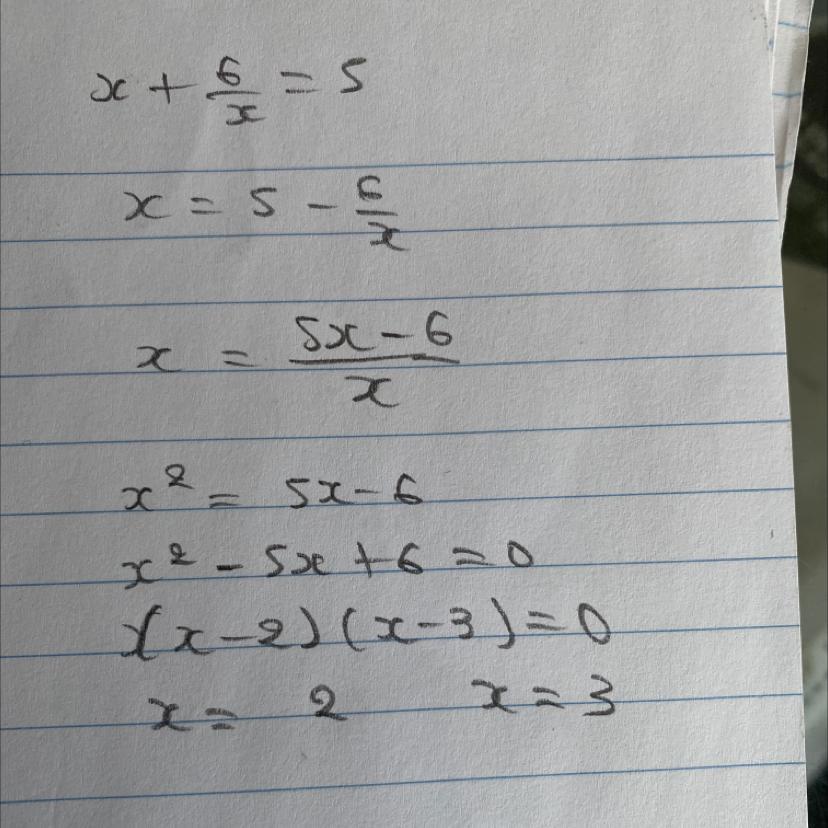 x + 6/x = 5
x = 5 - 6/x
x = (5x - 6)/x
x² = 5x - 6
x² - 5x + 6 = 0
(x - 2)(x - 3) = 0
x = 2 x = 3